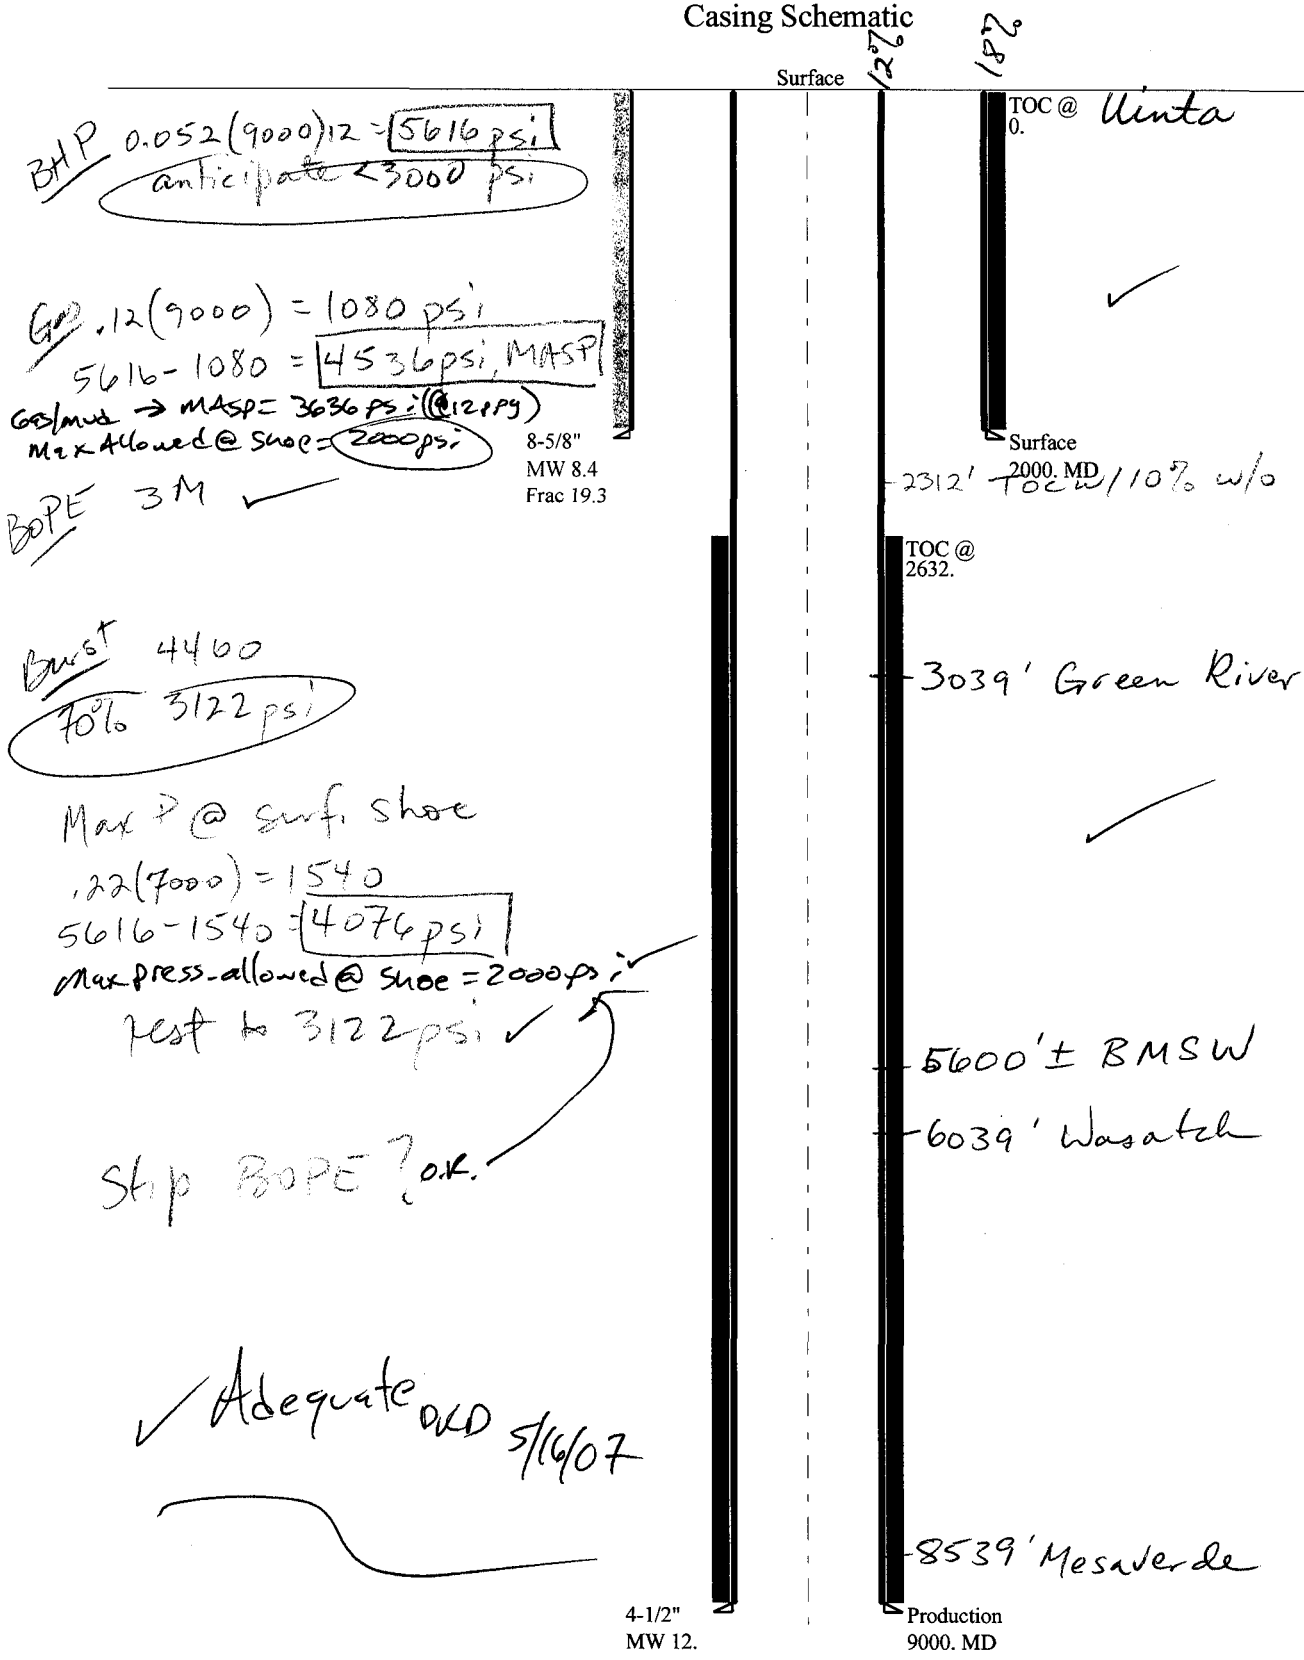 Casing Schematic
12%
18%
Surface
TOC @
0.
Uinta
BHP 0.052(9000)12 = 5616 psi
anticipate <3000 psi
Gas .12(9000) = 1080 psi
5616-1080 = 4536psi, MASP
Gas/mud → MASP= 3636 psi (@12ppg)
Max Allowed @ Shoe= 2000psi
BOPE 3M ✓
8-5/8"
MW 8.4
Frac 19.3
Surface
2000. MD
2312' TOC w/10% w/o
TOC @
2632.
Burst 4460
70% 3122 psi
3039' Green River
Max P @ surf. shoe
.22(7000) = 1540
5616-1540 = 4076psi
Max press. allowed @ shoe = 2000psi ✓
test to 3122psi ✓
5600'± BMSW
6039' Wasatch
BOPE? O.K.
✓ Adequate DKD 5/16/07
8539' Mesaverde
4-1/2"
MW 12.
Production
9000. MD